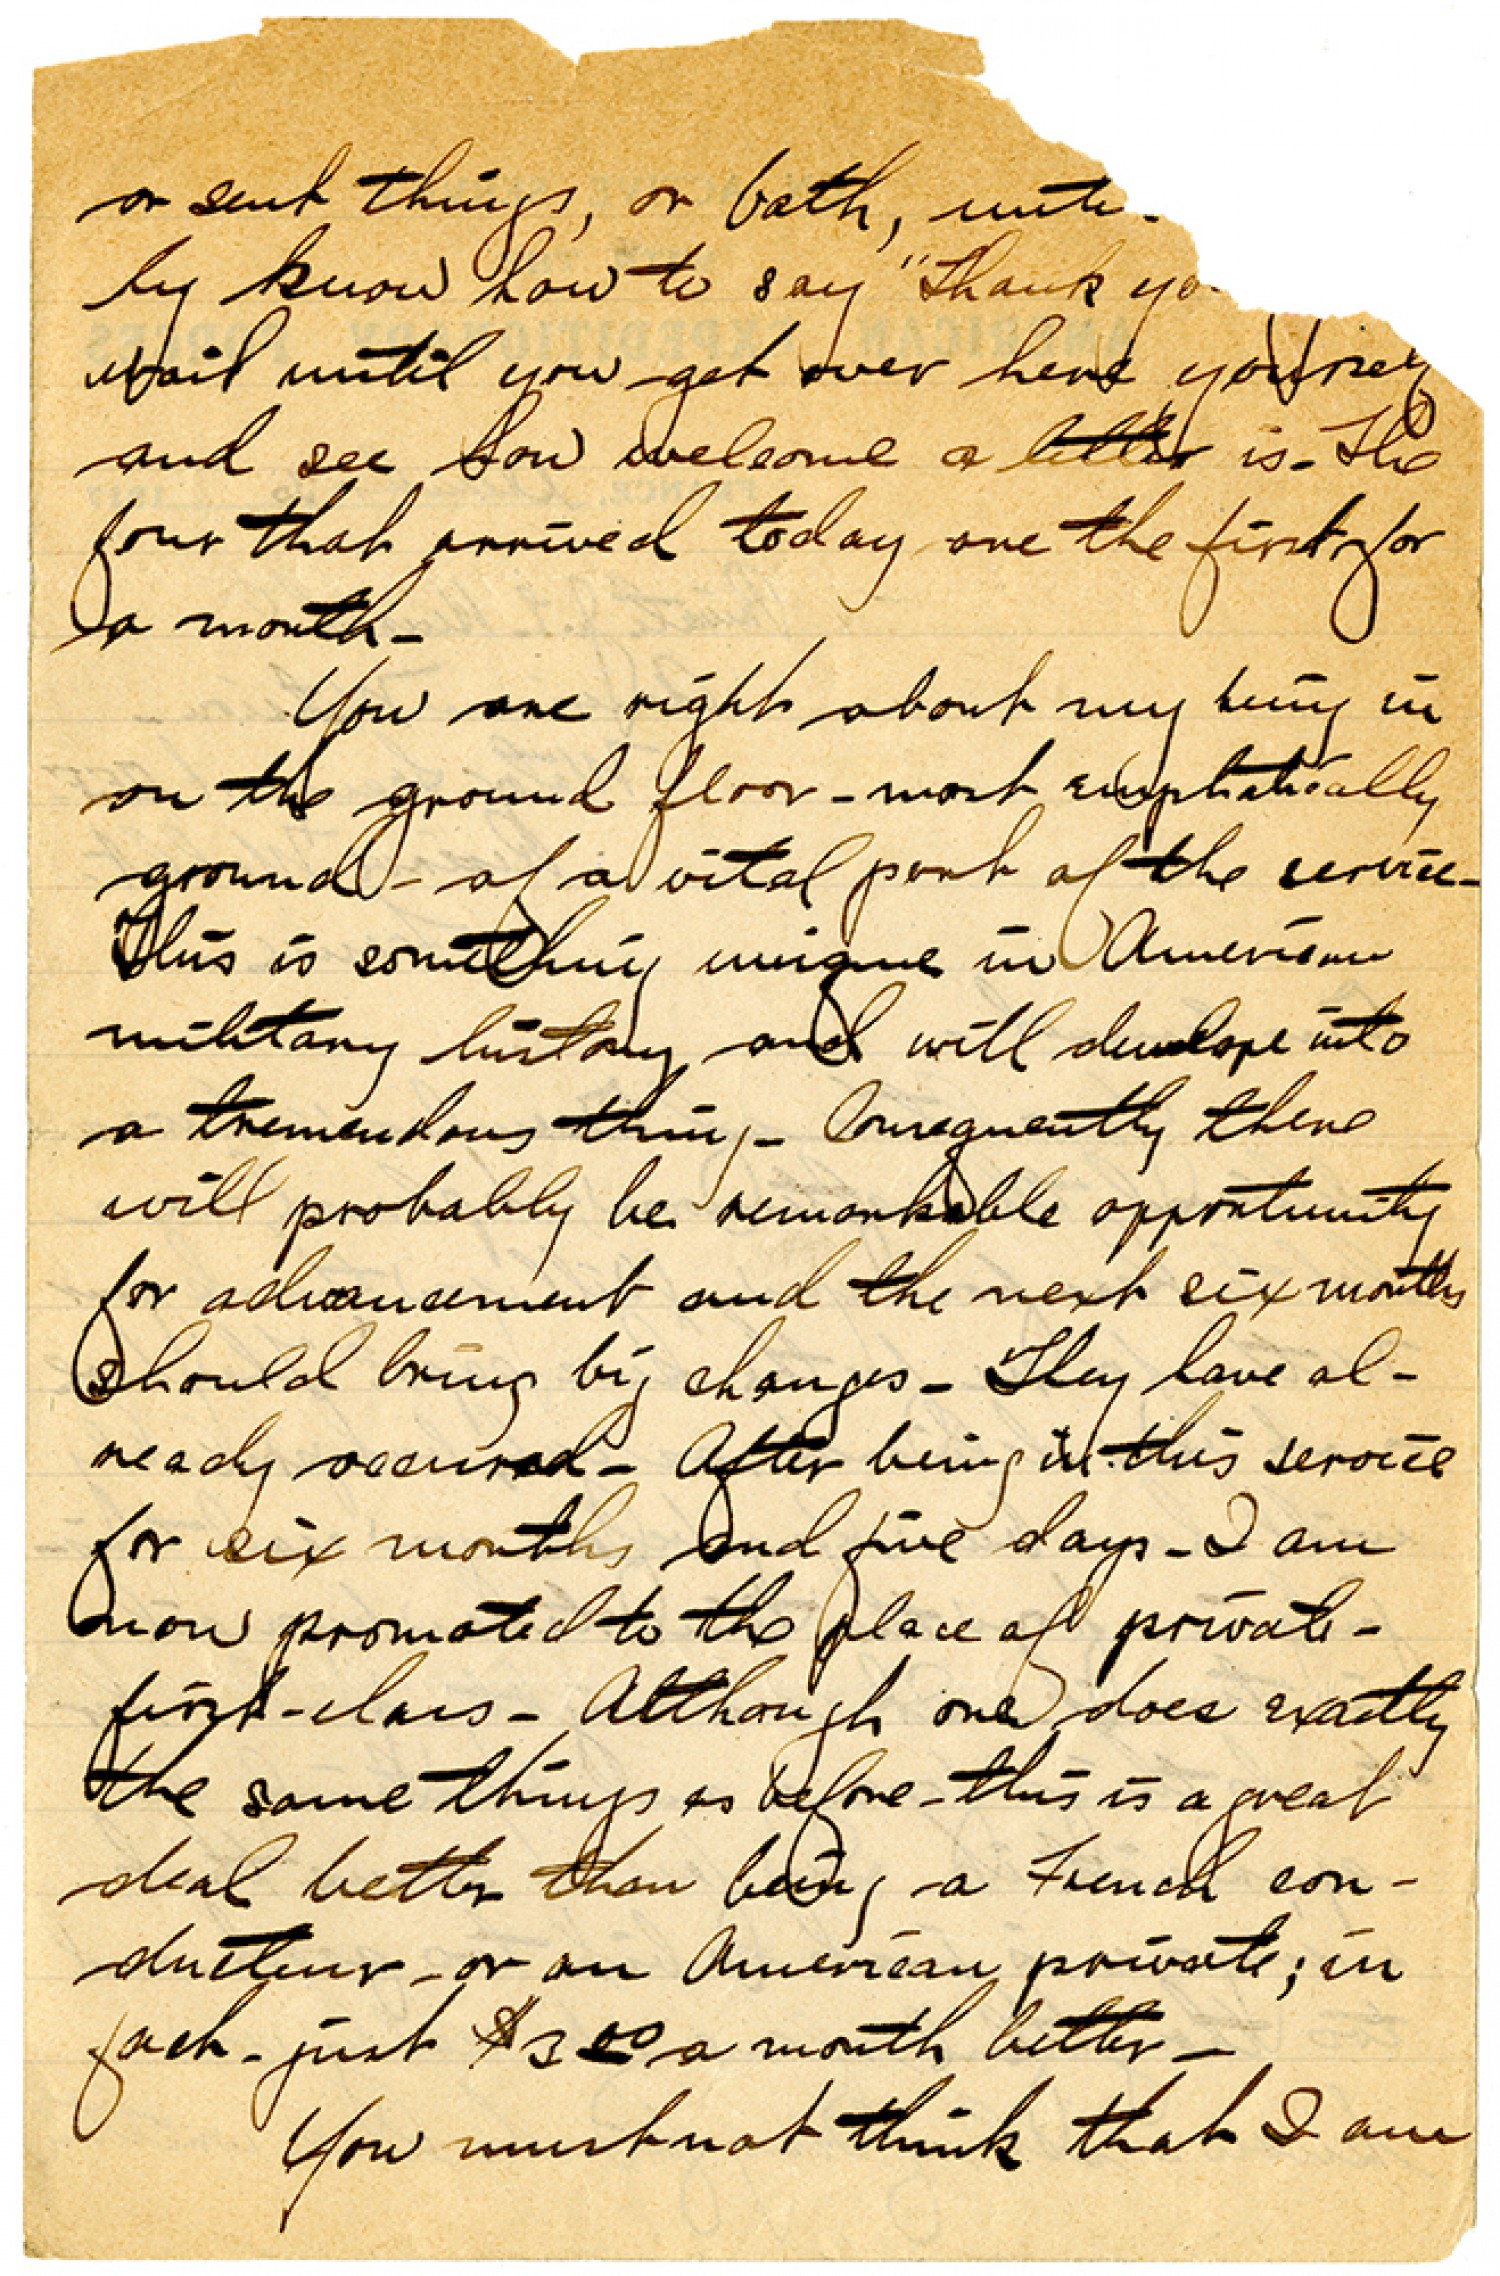 or sent things, or both,
ly know how to say "Thank yo
wait until you get over here yourself
and see how welcome a letter is - The
four that arrived today are the first for
a month -
You are right about my being in
on the ground floor - most emphatically
ground - of a vital part of the service -
This is something unique in American
military history and will develope into
a tremendous thing - Consequently there
will probably be remarkable opportunity
for advancement and the next six months
should bring big changes - They have al-
ready occurred - After being in this service
for six months and five days - I am
now promoted to the place of private -
first-class - Although one does exactly
the same things as before - this is a great
deal better than being a French con-
ducteur - or an American private; in
fact - just $3.00 a month better -
You must not think that I am